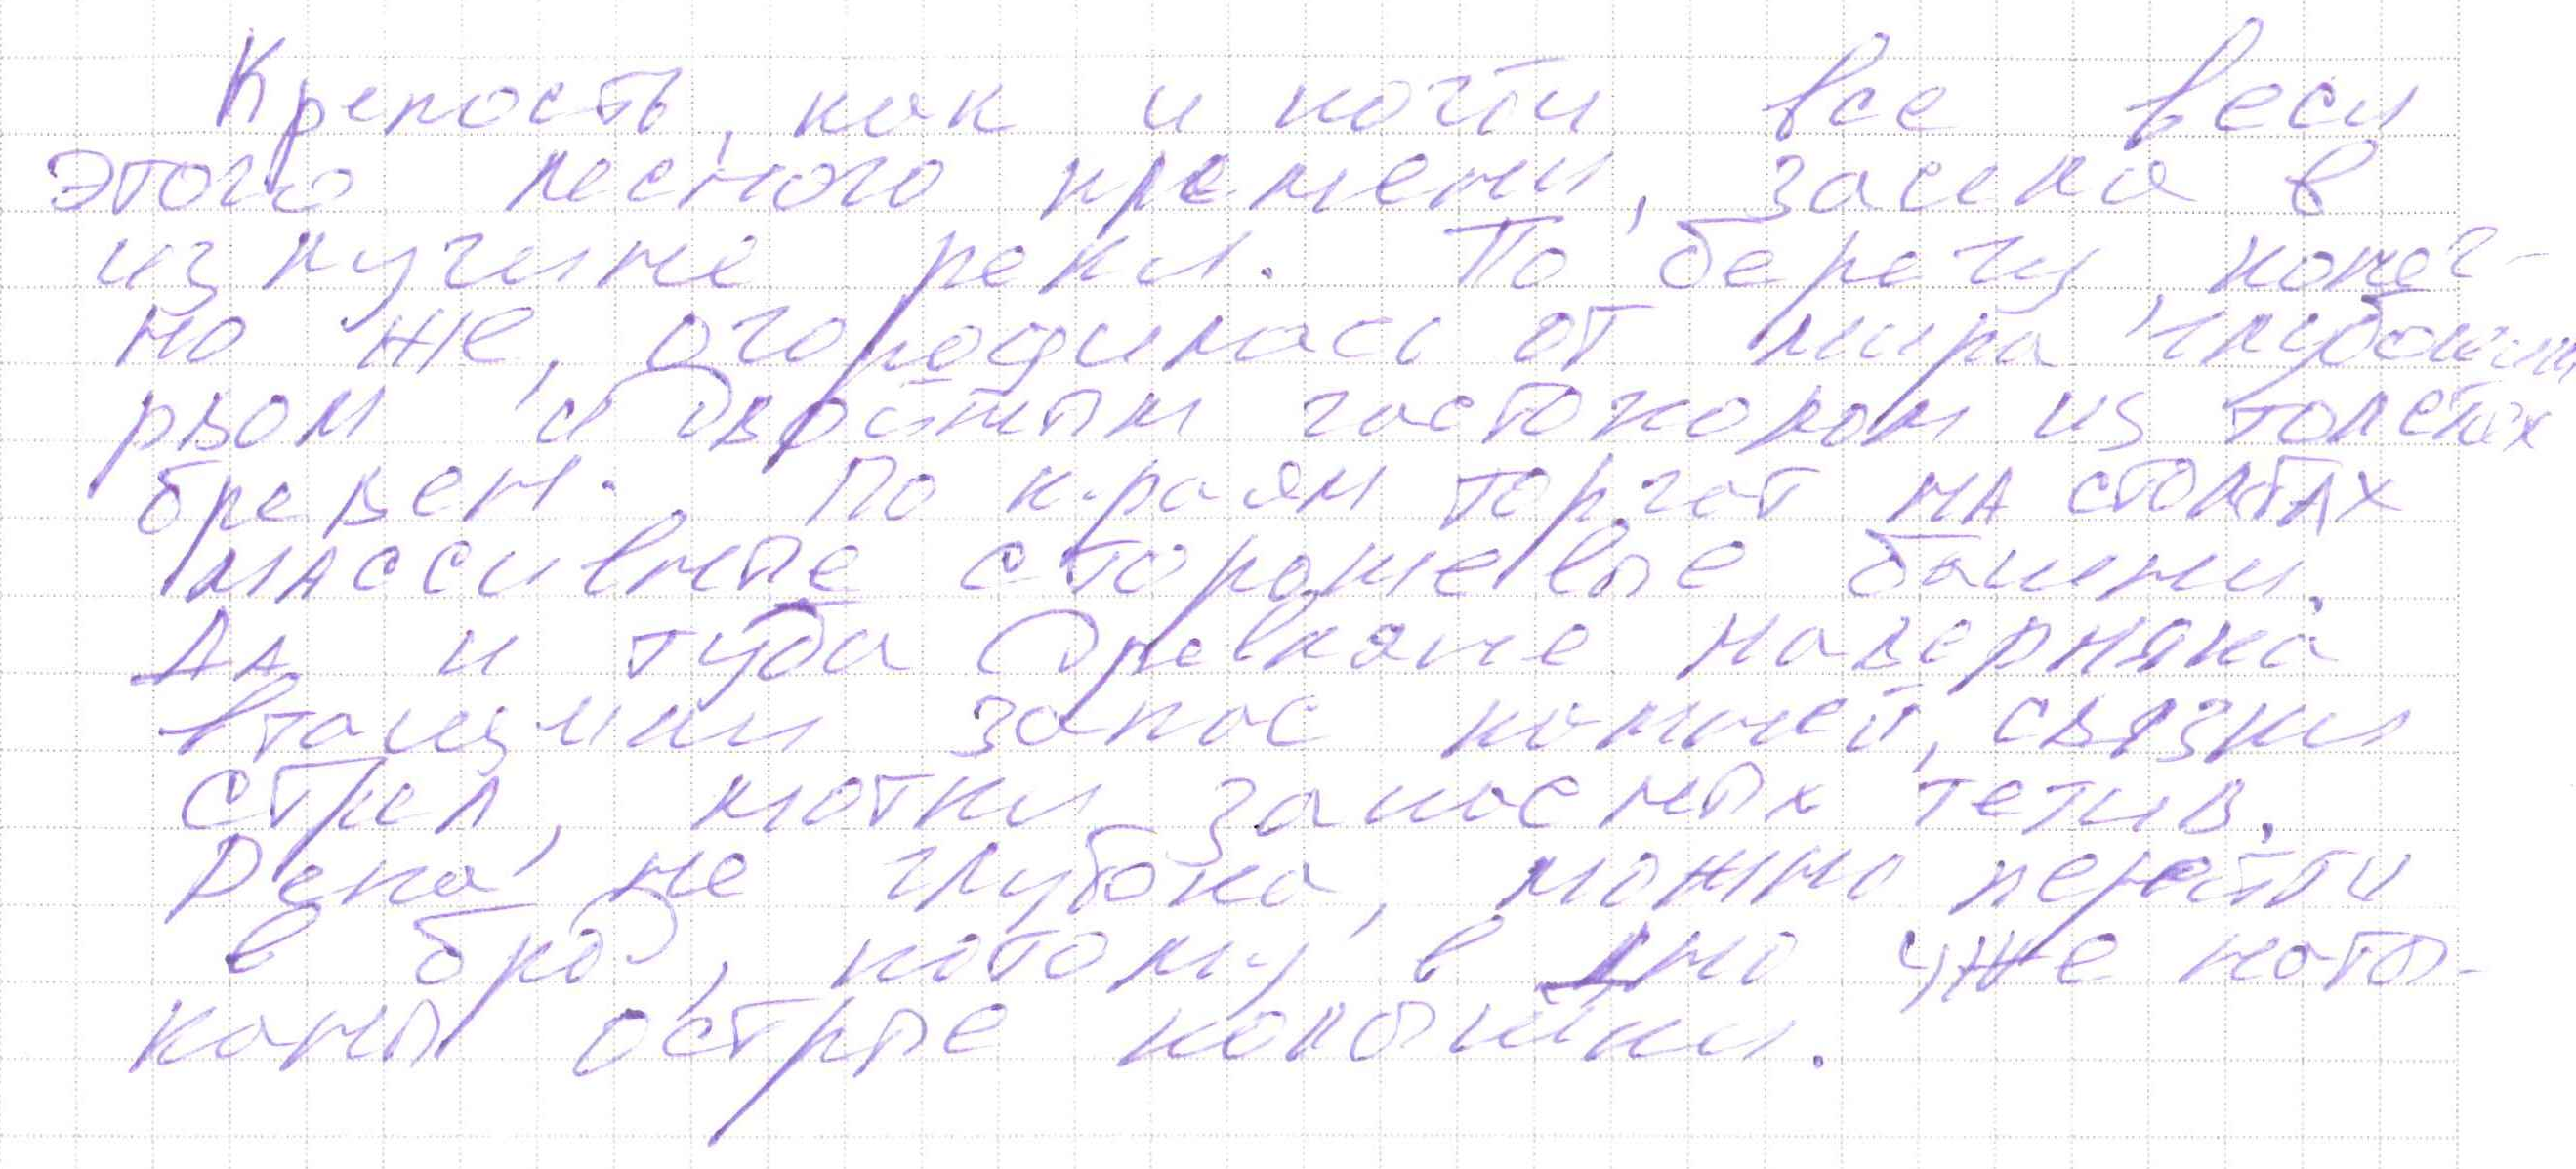 Крепость, как и почти все веси
этого лесного племени, засела в
излучине реки. По берегу, конеч-
но же, огородилась от мира глубоким
рвом и двойным частоколом из толстых
бревен. По краям торчат на столбах
массивные сторожевые башни.
Да и туда древляне наверняка
втащили запас камней, связки
стрел, мотки запасных тетив.
Река не глубока, можно перейти
в брод, потому в дно уже наты-
каны острые колышки.